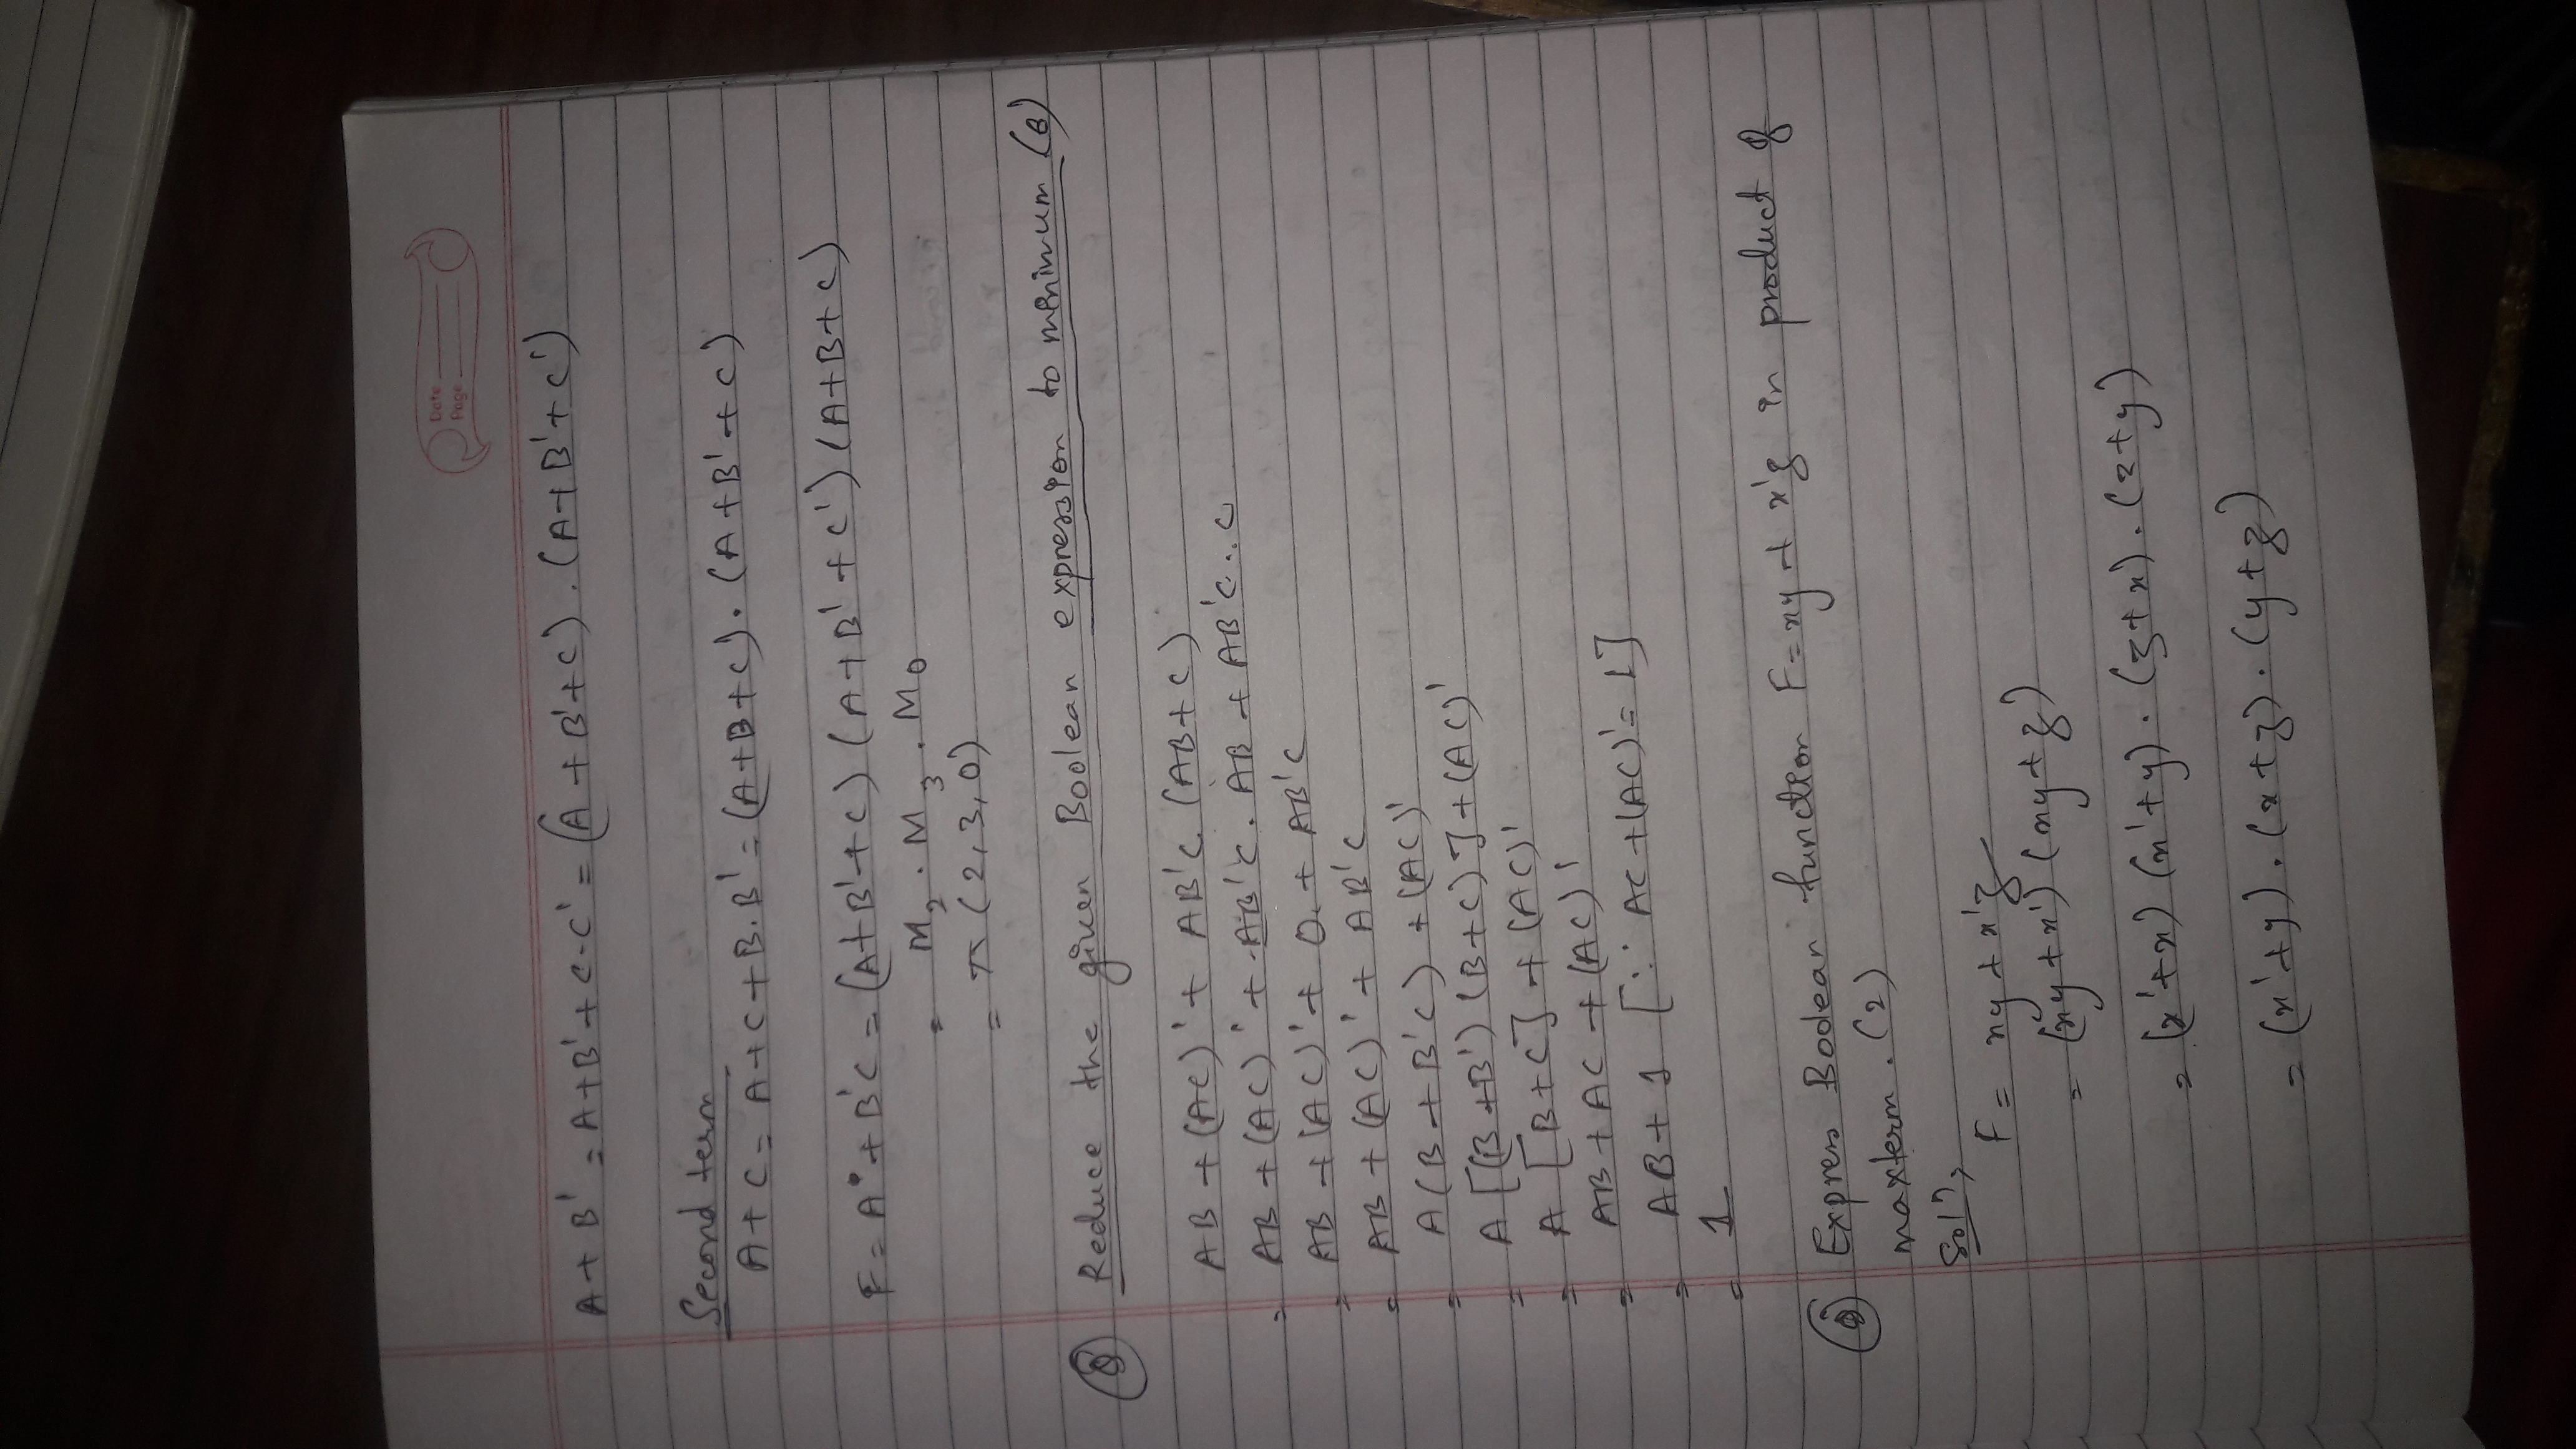 Date
Page
A + B' = A+B'+ C.C' = (A + B'+C) . (A+B'+C')
Second term
A+C = A+C+B.B' = (A+B+C). (A+B'+C)
F = A + B'C = (A+B'+C) (A+B'+C') (A+B+C)
= M2 . M3 . M0
= π (2,3,0)
Q Reduce the given Boolean expression to minimum
AB + (AC)' + AB'C (AB+C)
= AB + (AC)' + AB'C. AB + AB'C.C
= AB + (AC)' + 0 + AB'C
= AB + (AC)' + AB'C
= A(B+B'C) + (AC)'
= A [(B+B') (B+C)] + (AC)'
= A [B+C] + (AC)'
= AB + AC + (AC)'
= AB + 1 [∵ AC+(AC)'=1]
= 1
Q Express Boolean function F=xy+x'z in product of
maxterm. (2)
Solⁿ,
F = xy + x'z
= (xy+x') (xy+z)
= (x'+x) (x'+y). (z+x). (z+y)
= (x'+y). (x+z). (y+z)